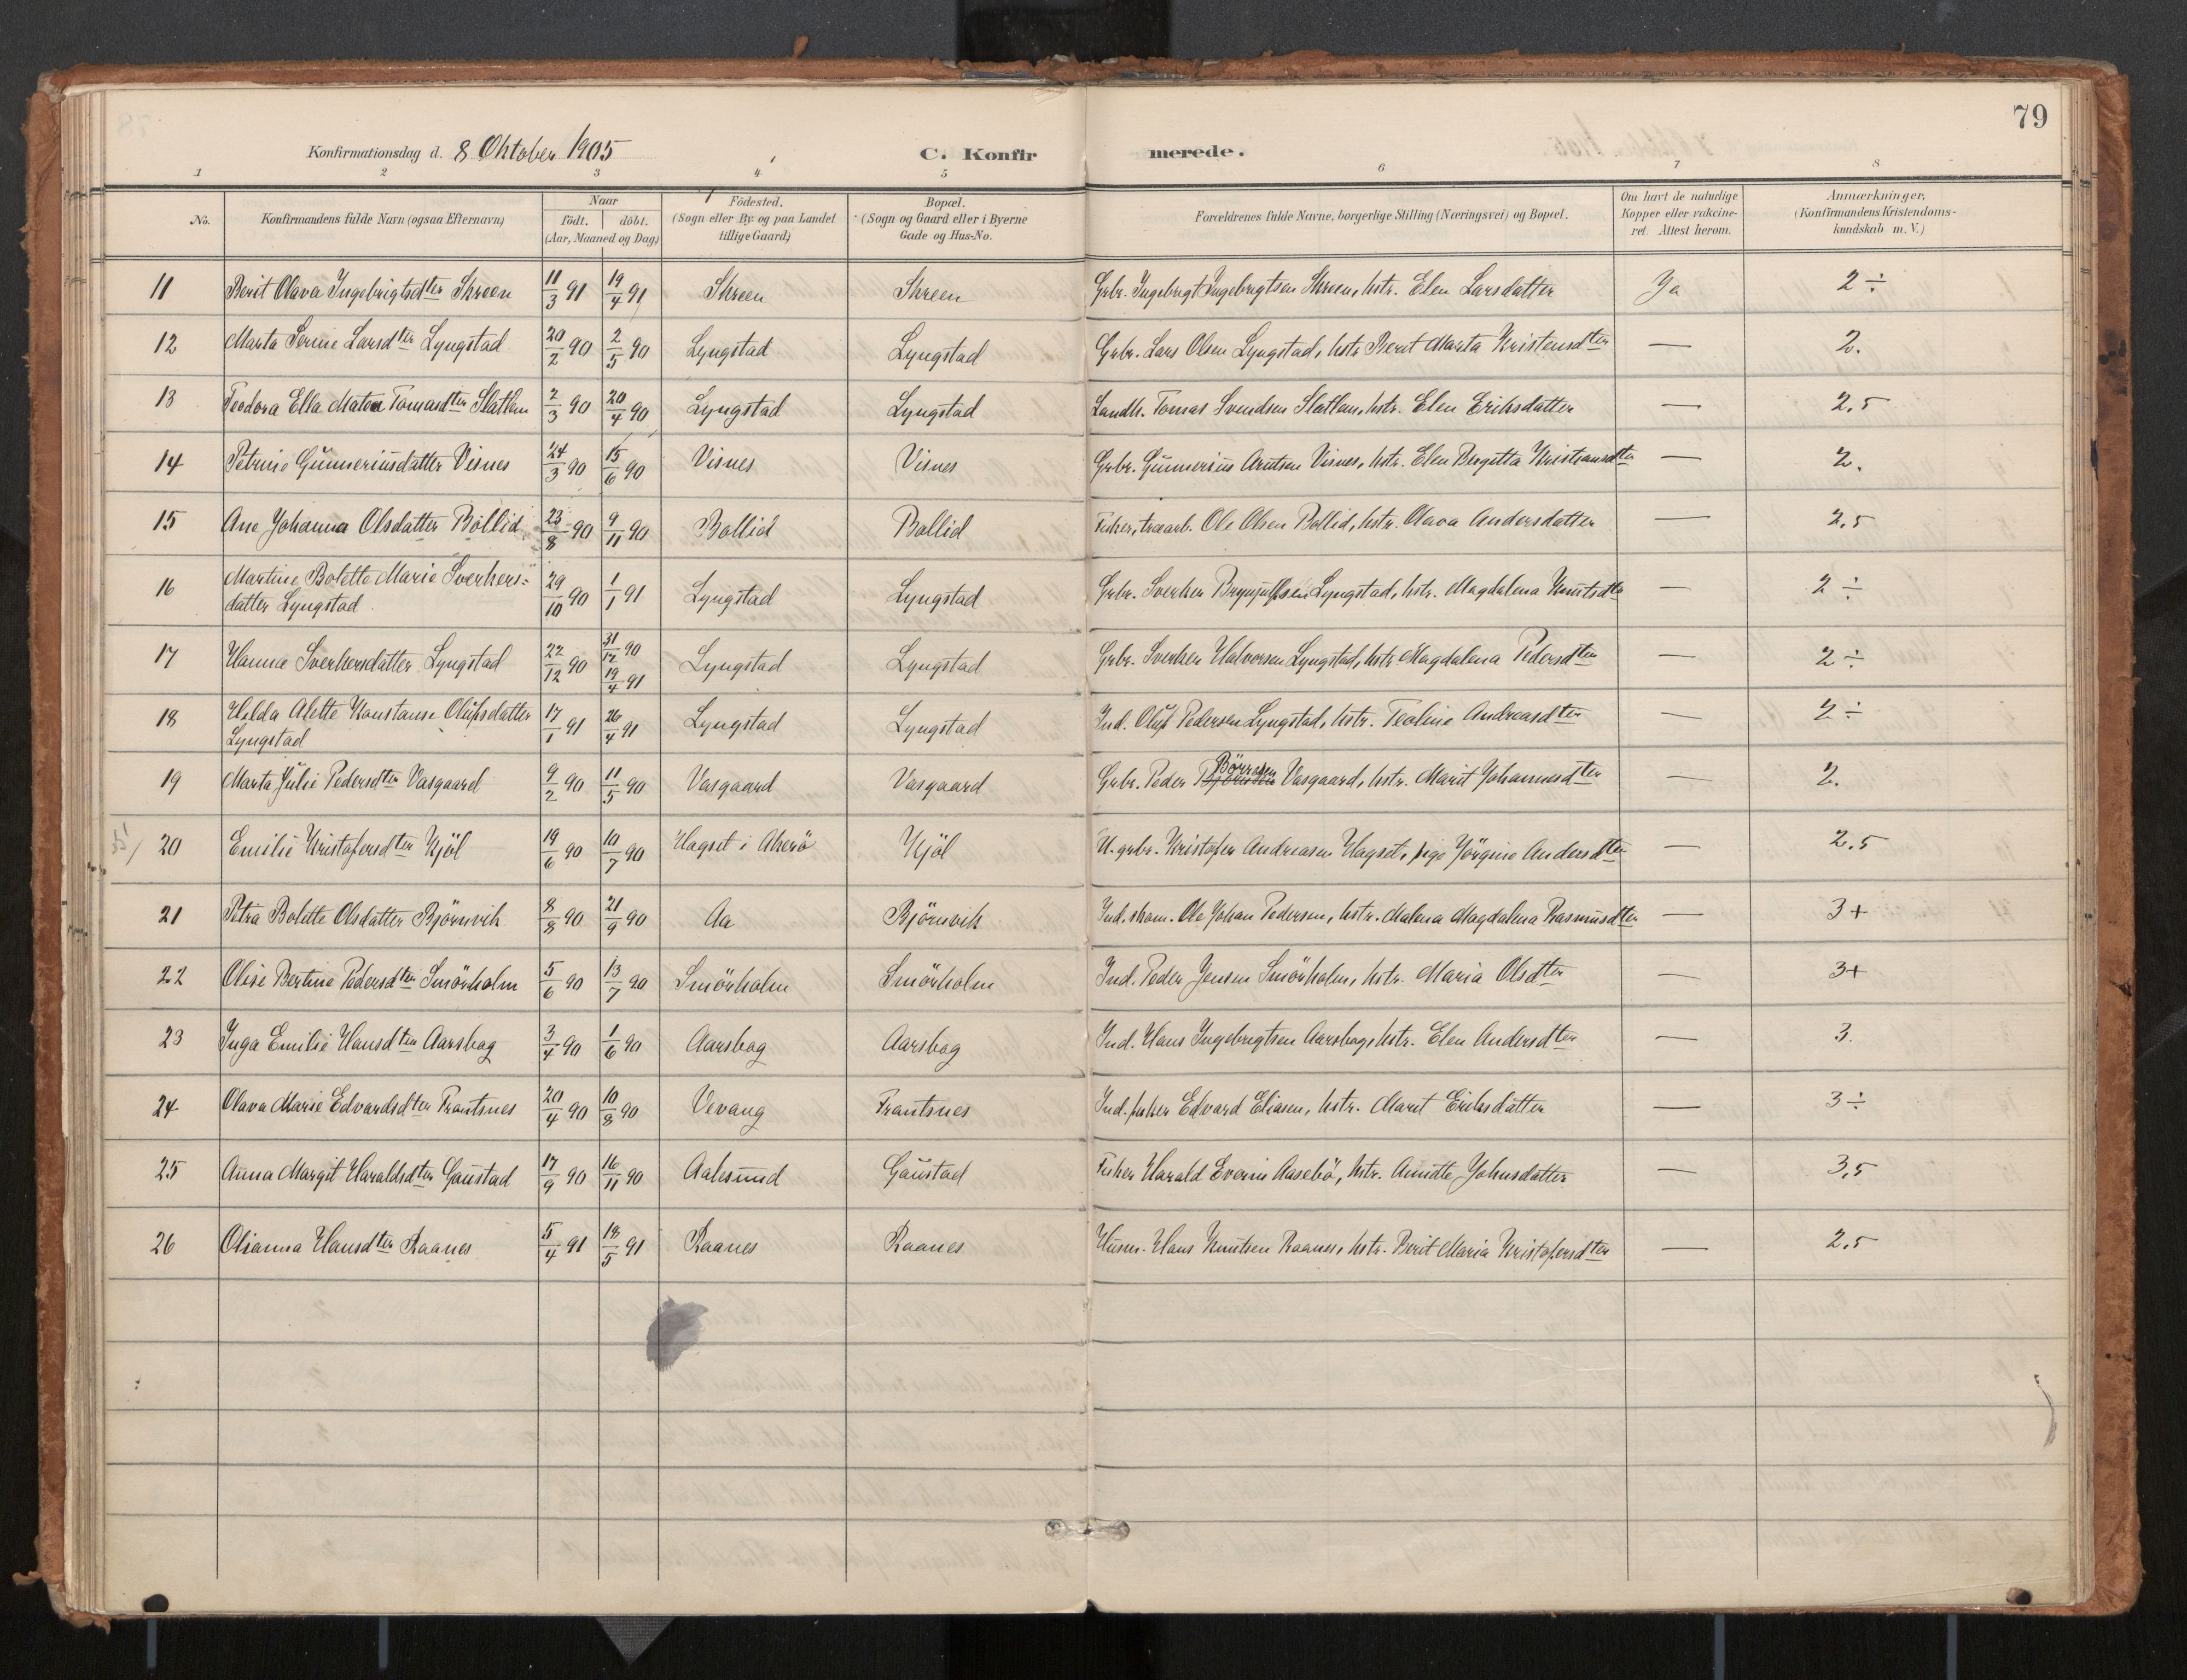 79
Konfirmationsdag d. 8 Oktober 1905 C. Konfir merede.
1 2 3 4 5 6 7 8
No. Konfirmandens fulde Navn (ogsaa Efternavn) Naar födt. döbt. (Aar, Maaned og Dag) Födested. (Sogn eller By og paa Landet tillige Gaard) Bopæl. (Sogn og Gaard eller i Byerne Gade og Hus-No. Forældrenes fulde Navne, borgerlige Stilling (Næringsvei) og Bopæl. Om havt de naturlige Kopper eller vakcineret. Attest herom. Anmærkninger, (Konfirmandens Kristendomskundskab m. V.)
11 Berit Olava Ingebrigtsdter Skreen 11/3 91 19/4 91 Skreen Skreen Grbr. Ingebrigt Ingebrigtsen Skreen, hstr. Elen Larsdatter Ja 2 ÷
12 Marta Serine Larsdter Lyngstad 20/2 90 2/5 90 Lyngstad Lyngstad Grbr. Lars Olsen Lyngstad, hstr Berit Marta Kristensdter — 2.
13 Teodora Ella Matea Tomasdter Slatlem 2/3 90 20/4 90 Lyngstad Lyngstad Landh. Tomas Svendsen Slatlem, hstr. Elen Eriksdatter — 2,5
14 Petrine Gunneriusdatter Visnes 24/3 90 15/6 90 Visnes Visnes Grbr. Gunnerius Arntsen Visnes, hstr. Elen Bergitta Kristiansdter — 2.
15 Ane Johanna Olsdatter Bollid 23/8 90 9/11 90 Bollid Bollid Fisker, træarb. Ole Olsen Bollid, hstr. Olava Andersdatter — 2,5
16 Martine Bolette Marie Sverkers=
datter Lyngstad 29/10 90 1/1 91 Lyngstad Lyngstad Grbr. Sverker Brynjulfsen Lyngstad, hstr. Magdalena Knutsdter — 2 ÷
17 Hanna Sverkersdatter Lyngstad 22/12 90 31/12 90 19/4 91 Lyngstad Lyngstad Grbr. Sverker Halvorsen Lyngstad, hstr Magdalena Pedersdter — 2 ÷
18 Hilda Alette Konstanse Olufsdatter
Lyngstad 17/1 91 26/4 91 Lyngstad Lyngstad Ind. Oluf Pedersen Lyngstad, hstr. Teoline Andreasdter — 2 ÷
19 Marta Julie Pedersdter Vasgaard 9/2 90 11/5 90 Vasgaard Vasgaard Grbr. Peder Börresen Vasgaard, hstr. Marit Johannesdter — 2.
20 Emilie Kristofersdter Kjöl 19/6 90 10/7 90 Hagset i Akerö Kjöl U. grbr. Kristofer Andreasen Hagset, pige Jörgine Andersdter — 2,5
21 Petra Bolette Olsdatter Björnvik 8/8 90 21/9 90 Aa Björnvik Ind. skom. Ole Johan Pedersen, hstr. Malena Magdalena Rasmusdter — 3+
22 Olise Bertine Pedersdter Smörholm 5/6 90 13/7 90 Smörholm Smörholm Ind. Peder Jensen Smörholm, hstr. Maria Olsdter — 3+
23 Inga Emilie Hansdter Aarsbog 3/4 90 1/6 90 Aarsbog Aarsbog Ind. Hans Ingebrigtsen Aarsbog, hstr. Elen Andersdter — 3.
24 Olava Marie Edvardsdter Frantsnes 20/4 90 10/8 90 Vevang Frantsnes Ind. fisker Edvard Eliasen, hstr. Marit Eriksdatter — 3 ÷
25 Anna Margit Haraldsdter Gaustad 17/9 90 16/11 90 Aalesund Gaustad Fisker Harald Everin Aasebö, hstr. Anndte Johnsdatter — 3,5
26 Olianna Hansdter Raanes 5/4 91 18/5 91 Raanes Raanes Husm. Hans Knutsen Raanes, hstr. Berit Maria Kristofersdter — 2,5